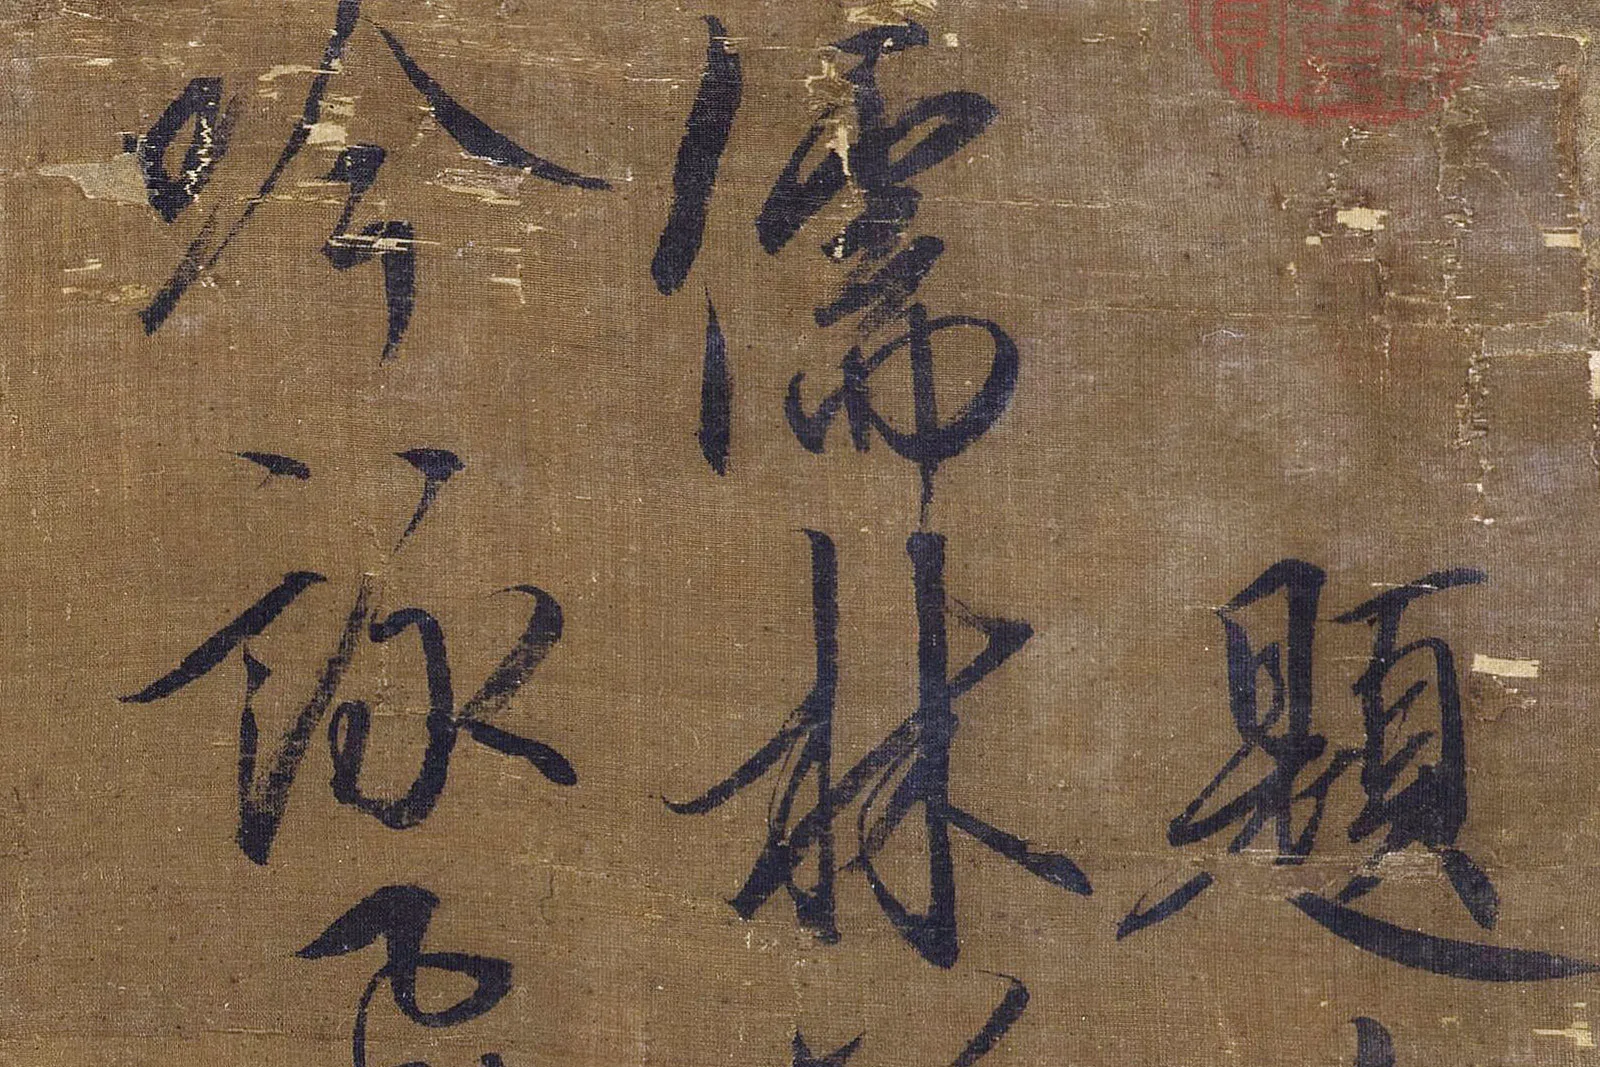 題
儒林
吟詠